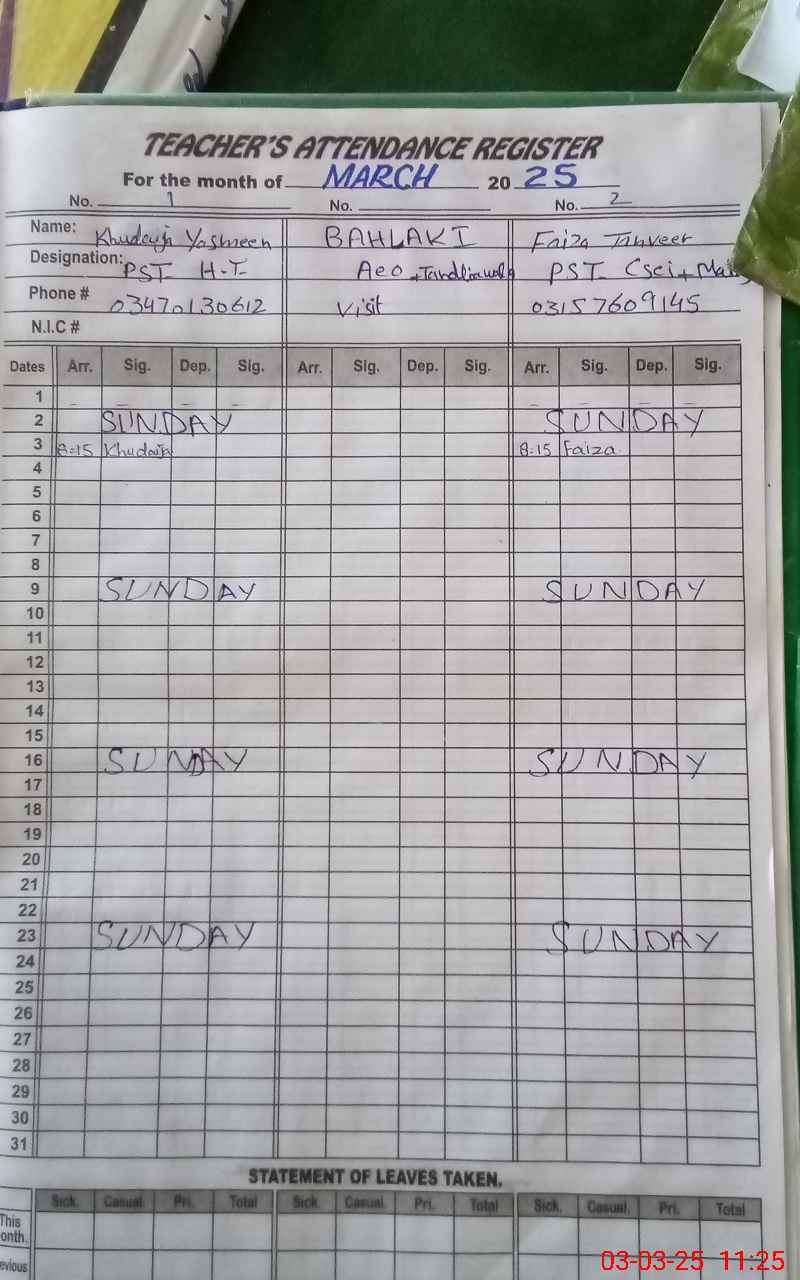 TEACHER'S ATTENDANCE REGISTER
For the month of MARCH 2025
No. 1 No. No. 2
Name: Khudayja Yasmeen BAHLAKI Faiza Tanveer
Designation: PST H-T Aeo Tandlianwala PST (Sci +
Phone # 03470130612 Visit 03157609145
N.I.C #
Dates Arr. Sig. Dep. Sig. Arr. Sig. Dep. Sig. Arr. Sig. Dep. Sig.
1
2 SUNDAY SUNDAY
3 8-15 Khudaija 8-15 Faiza
4
5
6
7
8
9 SUNDAY SUNDAY
10
11
12
13
14
15
16 SUNDAY SUNDAY
17
18
19
20
21
22
23 SUNDAY SUNDAY
24
25
26
27
28
29
30
31
STATEMENT OF LEAVES TAKEN.
Sick. Casual. Pri. Total Sick. Casual. Pri. Total Sick. Casual. Pri. Total
This
onth.
evious
03-03-25 11:25